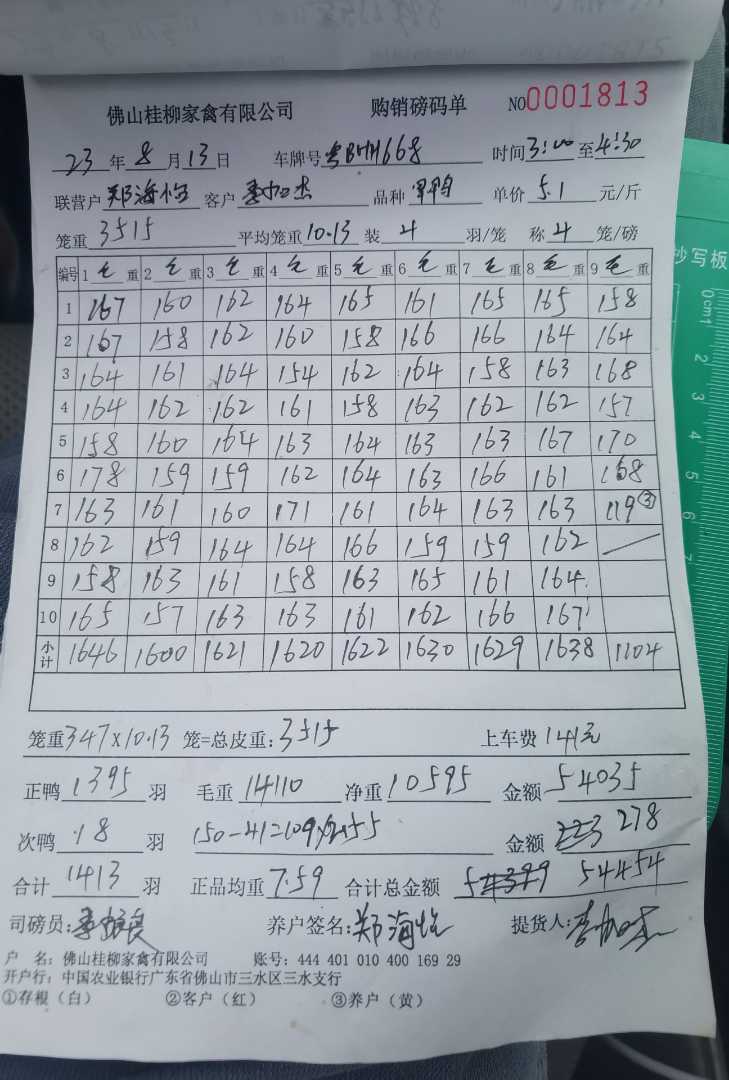 佛山桂柳家禽有限公司 购销磅码单 NO0001813
23年8月13日 车牌号粤BHH668 时间3:00至4:30
联营户郑海怡 客户李加杰 品种 单价5.1元/斤
笼重3515 平均笼重10.13装4羽/笼 称4笼/磅
编号 1毛重 2毛重 3毛重 4毛重 5毛重 6毛重 7毛重 8毛重 9毛重
1 167 160 162 164 165 161 165 165 158
2 167 158 162 160 158 166 166 164 164
3 164 161 164 154 162 164 158 163 168
4 164 162 162 161 158 163 162 162 157
5 158 160 164 163 164 163 163 167 170
6 178 159 159 162 164 163 166 161 168
7 163 161 160 171 161 164 163 163 119③
8 162 159 164 164 166 159 159 162
9 158 163 161 158 163 165 161 164
10 165 157 163 163 161 162 166 167
小计 1646 1600 1621 1620 1622 1630 1629 1638 1104
笼重347×10.13 笼=总皮重:3515 上车费141元
正鸭1395羽 毛重14110 净重10595 金额54035
次鸭18羽 150-41=109×2.55 金额278
合计1413羽 正品均重7.59 合计总金额 54454
司磅员: 养户签名:郑海怡 提货人:李加杰
户 名:佛山桂柳家禽有限公司 账号:444 401 010 400 169 29
开户行:中国农业银行广东省佛山市三水区三水支行
①存根(白) ②客户(红) ③养户(黄)
抄写板
0cm1
2
3
4
5
6
7